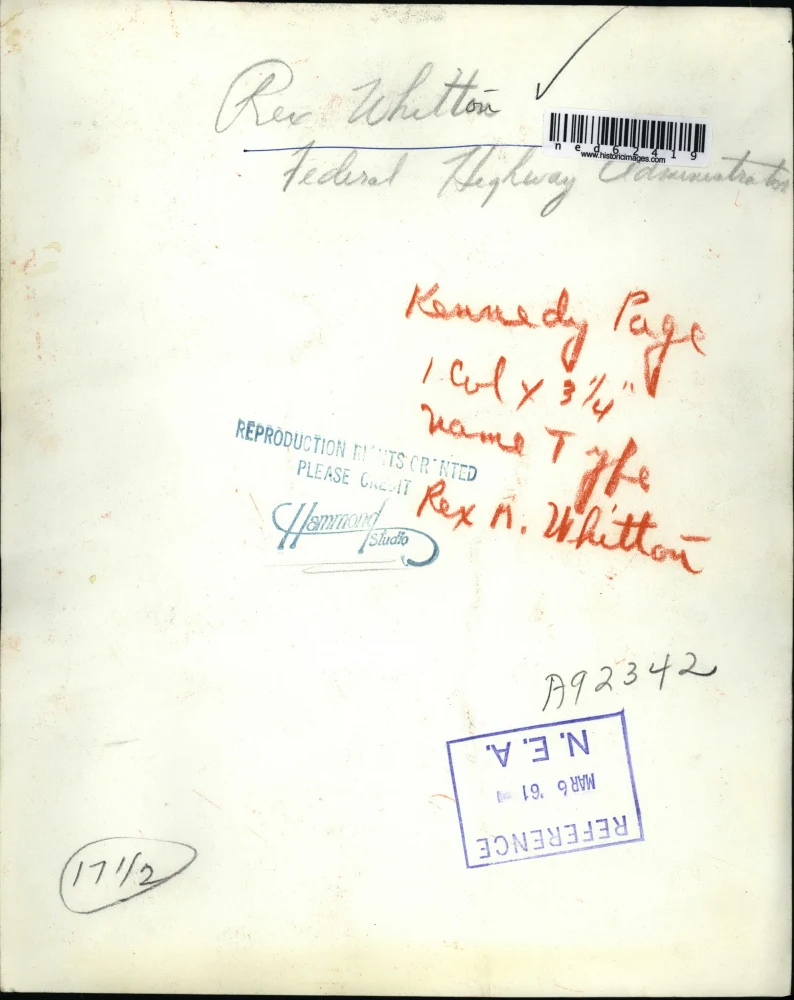 Rex Whitton
ned62419
www.historicimages.com
Federal Highway Administrator
Kennedy Page
1 Col x 3 1/4"
Name Type
Rex M. Whitton
REPRODUCTION RIGHTS GRANTED
PLEASE CREDIT
Hammond
Studio
A92342
REFERENCE
MAR 6 '61
N.E.A.
17 1/2